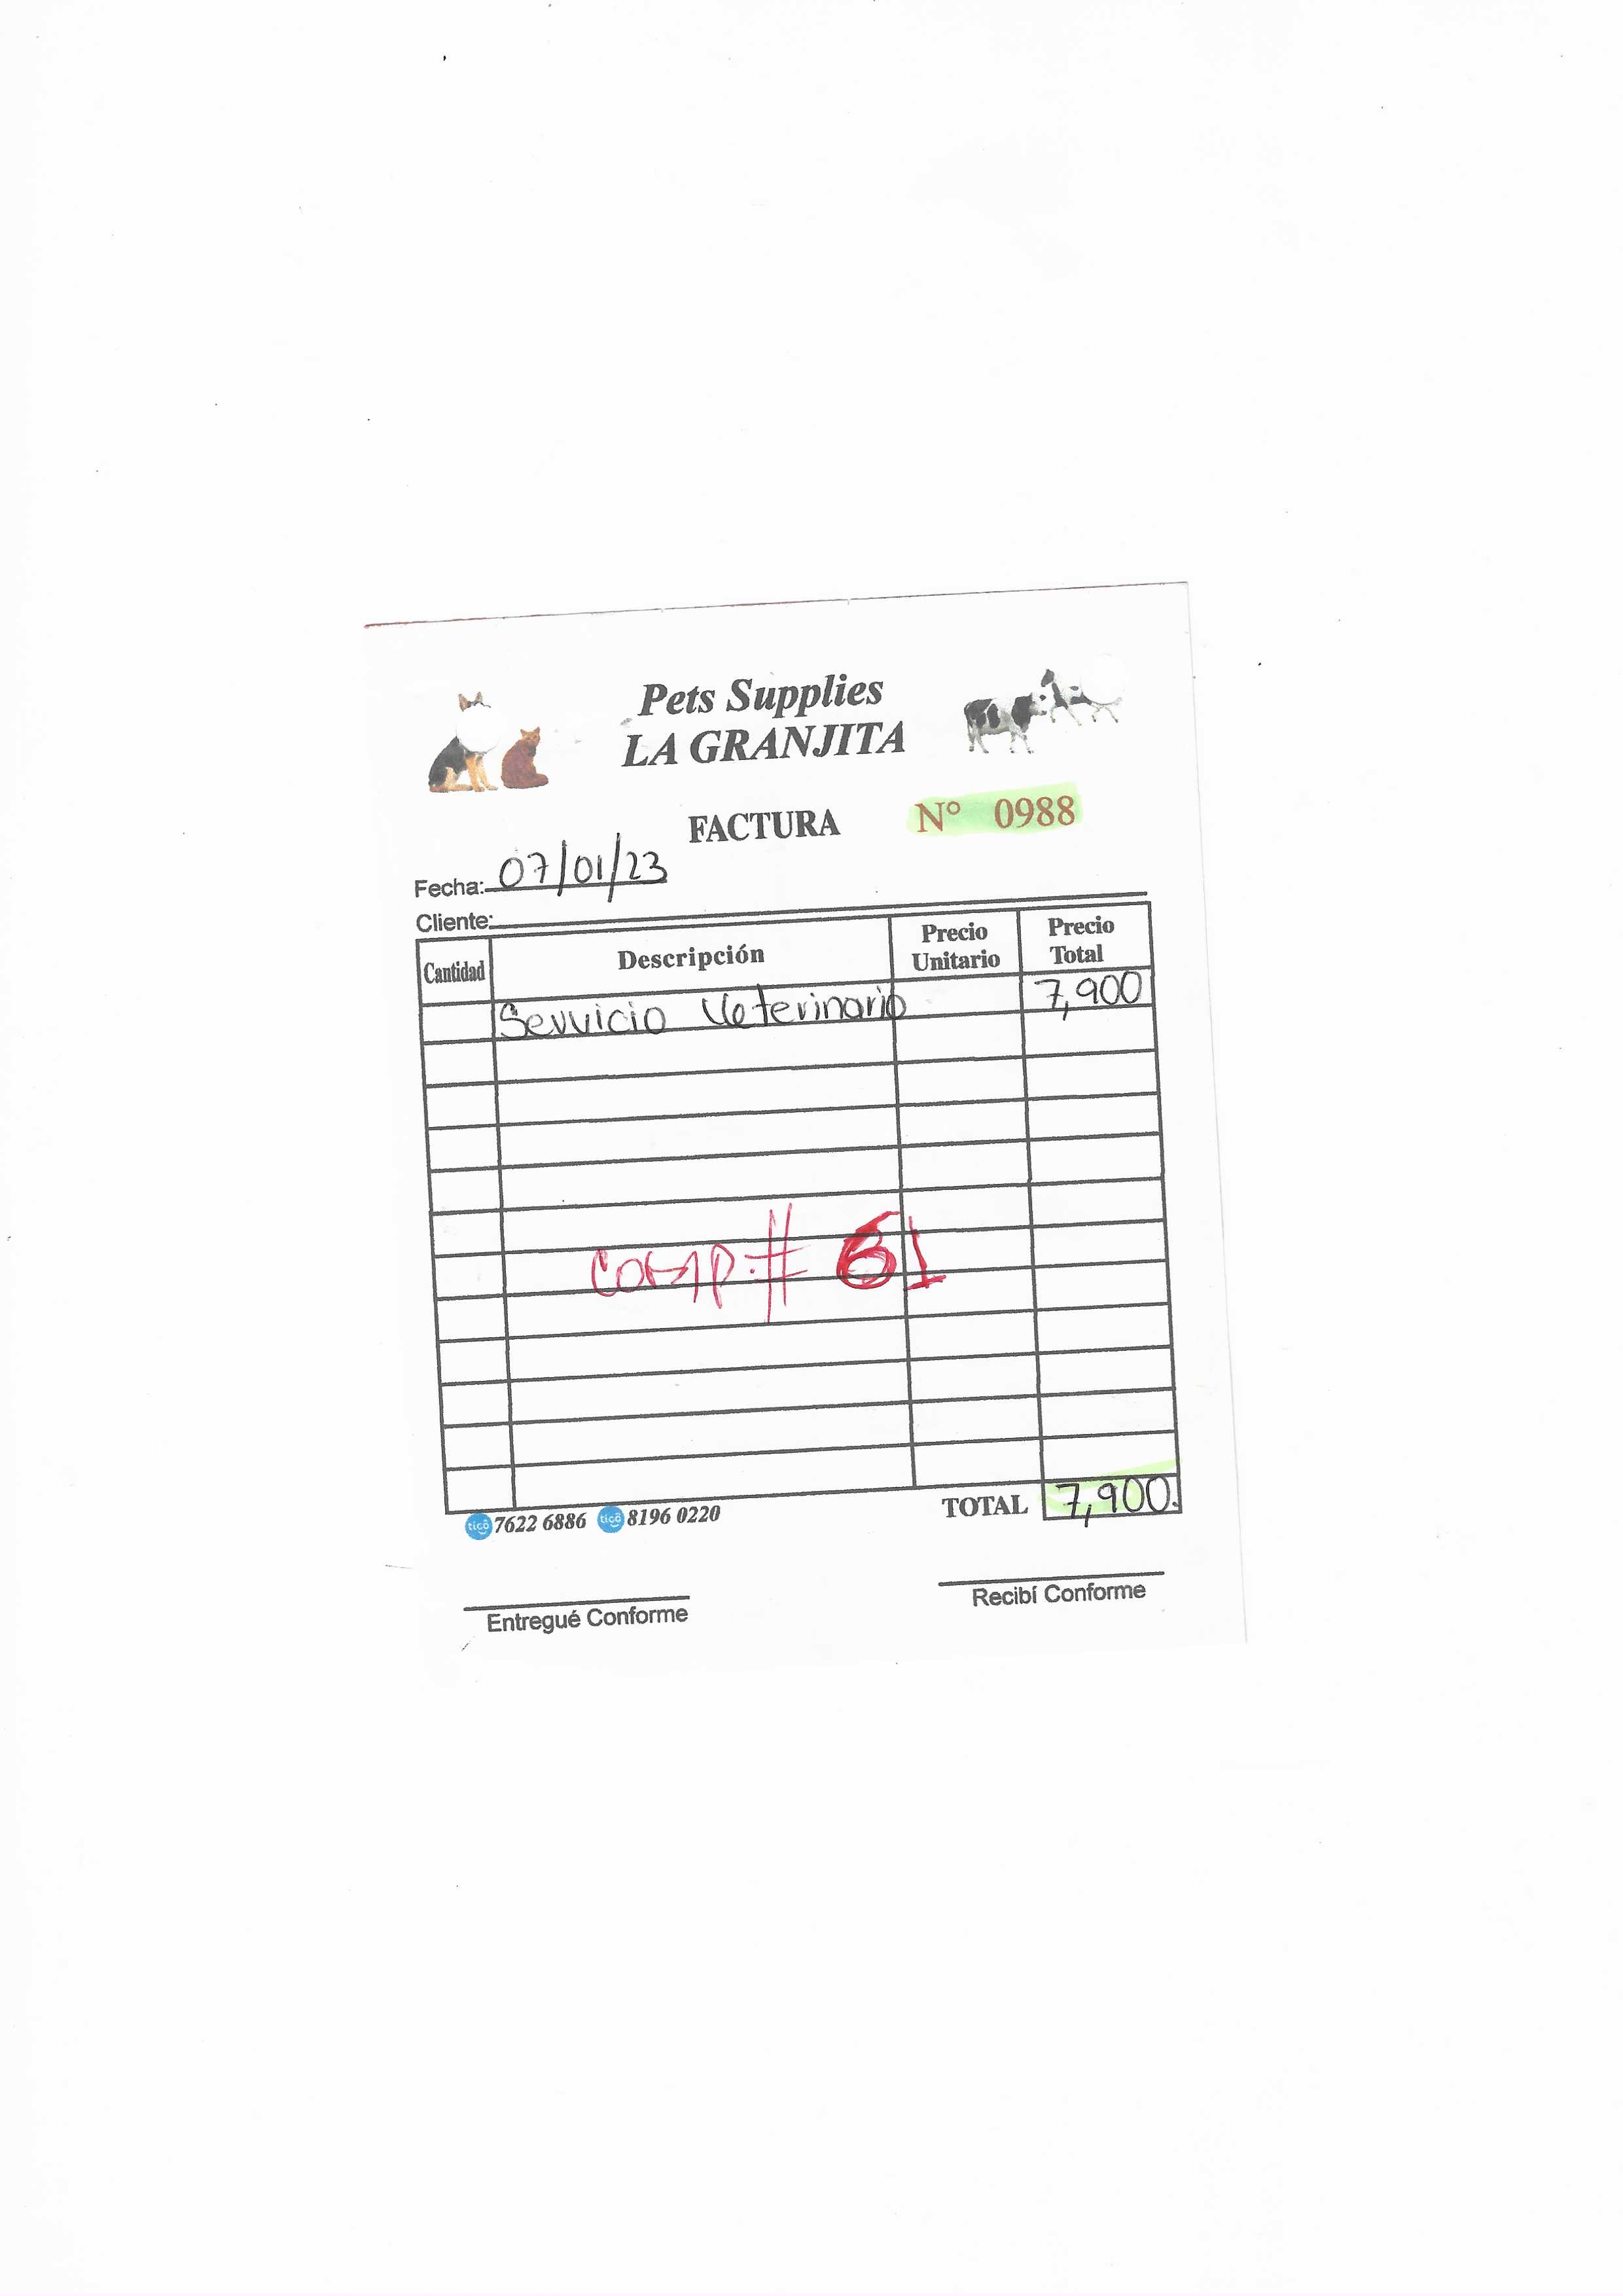 Pets Supplies
LA GRANJITA
FACTURA N° 0988
Fecha: 07/01/23
Cliente:
Cantidad Descripción Precio Unitario Precio Total
Servicio Veterinario 7,900
comp. # 61
TOTAL 7,900.
tigo 7622 6886 tigo 8196 0220
Entregué Conforme Recibí Conforme